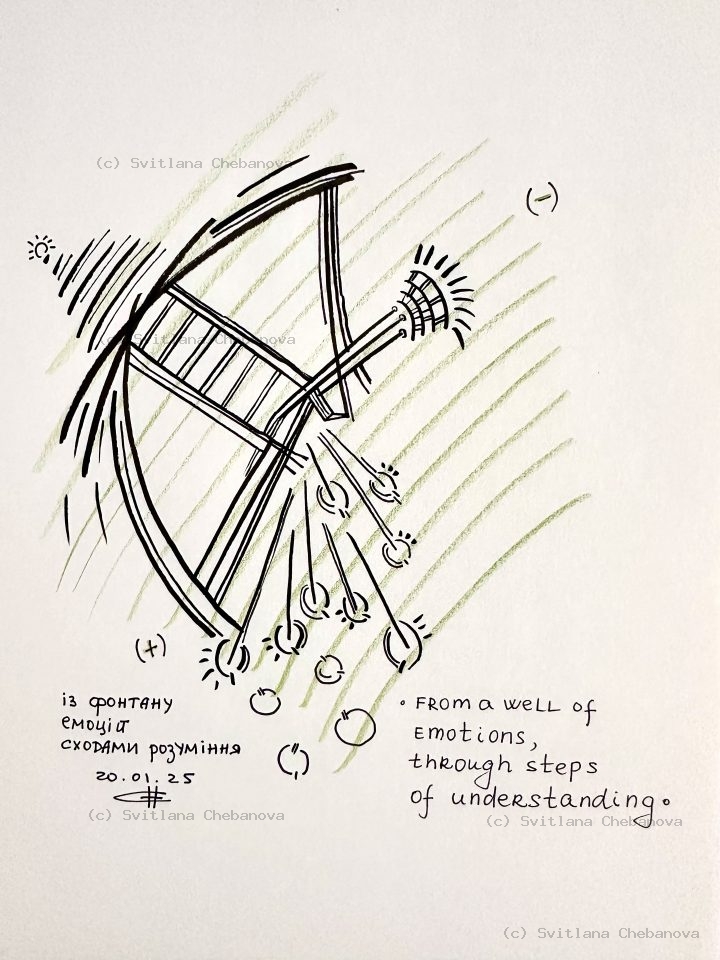 (c) Svitlana Chebanova
(-)
(c) Svitlana Chebanova
(+)
із фонтану
емоцій
сходами розуміння
20.01.25
(c) Svitlana Chebanova
• From a well of
Emotions,
through steps
of understanding.
(c) Svitlana Chebanova
(c) Svitlana Chebanova